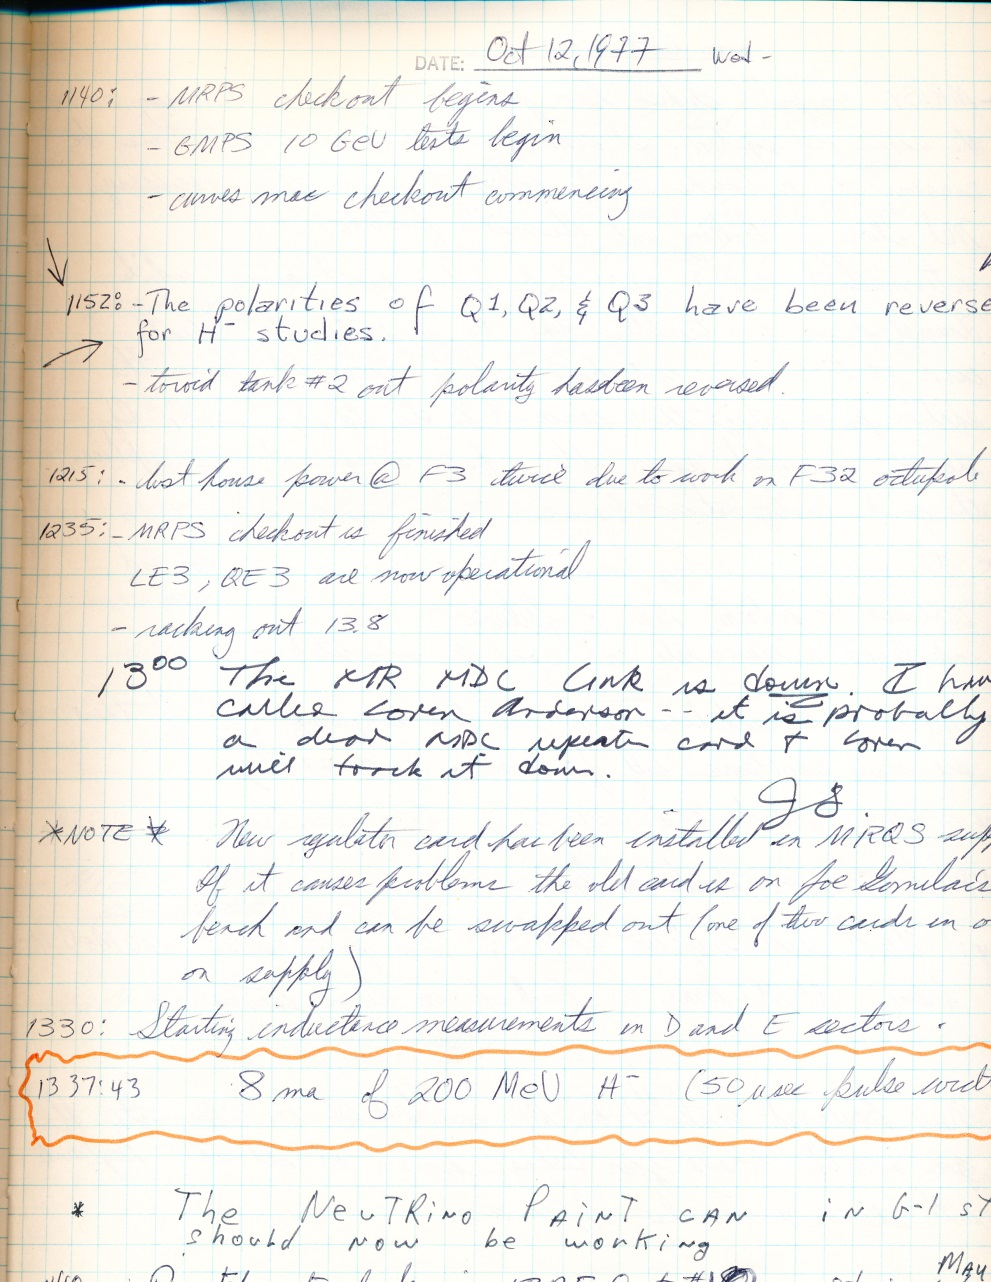 DATE: Oct 12, 1977 Wed-
1140: - MRPS checkout begins
- GMPS 10 GeV tests begin
- curves mac checkout commencing
1152: - The polarities of Q1, Q2, & Q3 have been reverse
for H⁻ studies.
- toroid tank #2 out polarity has been reversed.
1215: - lost house power @ F3 twice due to work on F32 octupole
1235: - MRPS checkout is finished
LE3, QE3 are now operational
- racking out 13.8
13⁰⁰ The XTR MDC link is down. I hav
called Loren Anderson -- it is probably
a dead MDC repeater card & Loren
will track it down.
JG
*NOTE* New regulator card has been installed in MRQS supp
If it causes problems the old card is on Joe Gomilar's
bench and can be swapped out (one of two cards in
on supply)
1330: Starting inductance measurements in D and E sectors.
1337:43 8 ma of 200 MeV H⁻ (50 μsec pulse widt
* The NeuTRino PAiNT CAN iN G-1 st
should now be working
MAU